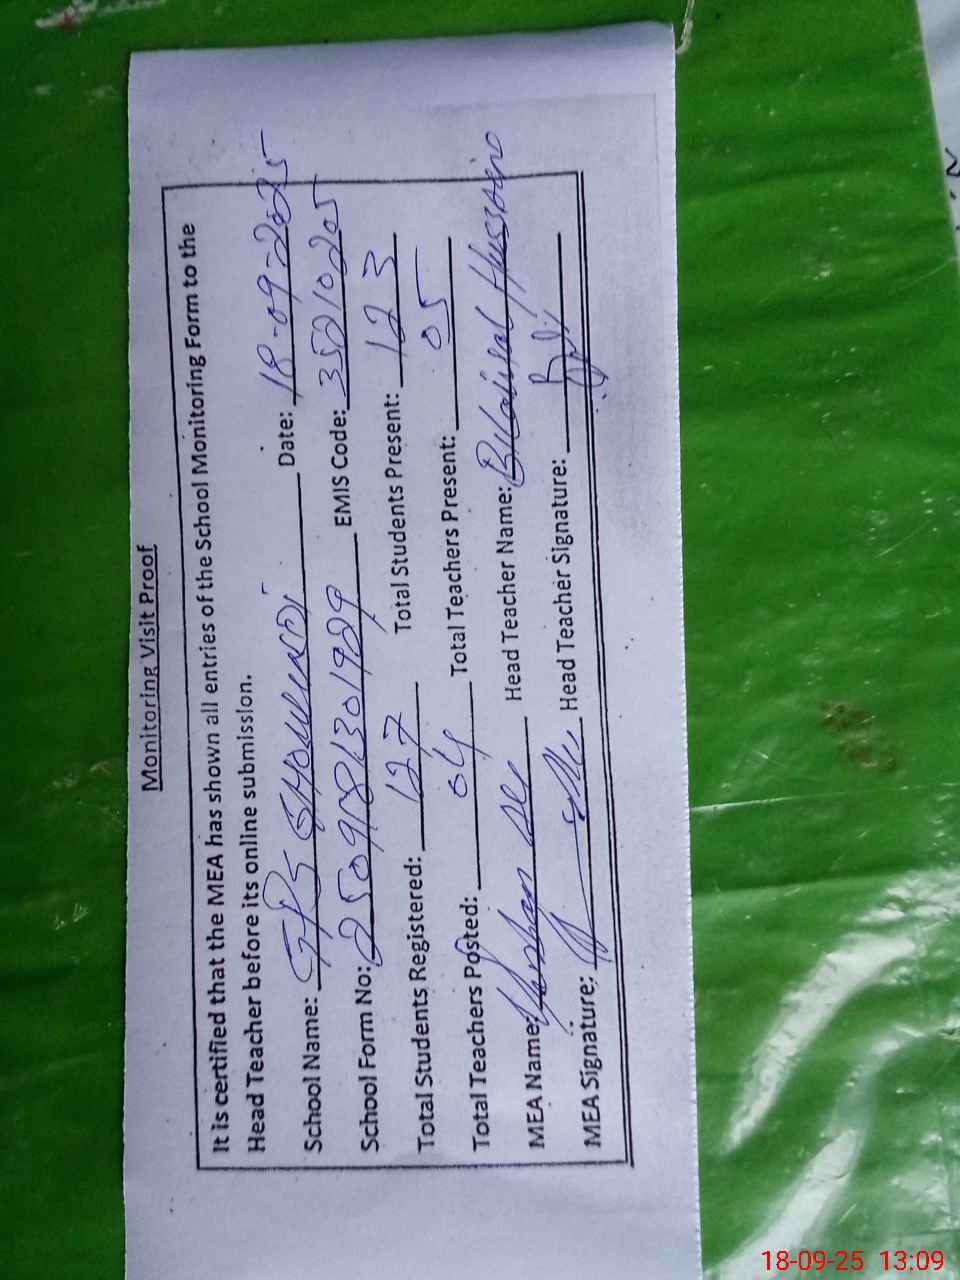 Monitoring Visit Proof
It is certified that the MEA has shown all entries of the School Monitoring Form to the
Head Teacher before its online submission.
School Name: GPS Date: 18-09-2025
School Form No: 2509181301929 EMIS Code: 35210205
Total Students Registered: 127 Total Students Present: 123
Total Teachers Posted: 04 Total Teachers Present: 05
MEA Name: Head Teacher Name: Hussain
MEA Signature: Head Teacher Signature:
18-09-25 13:09